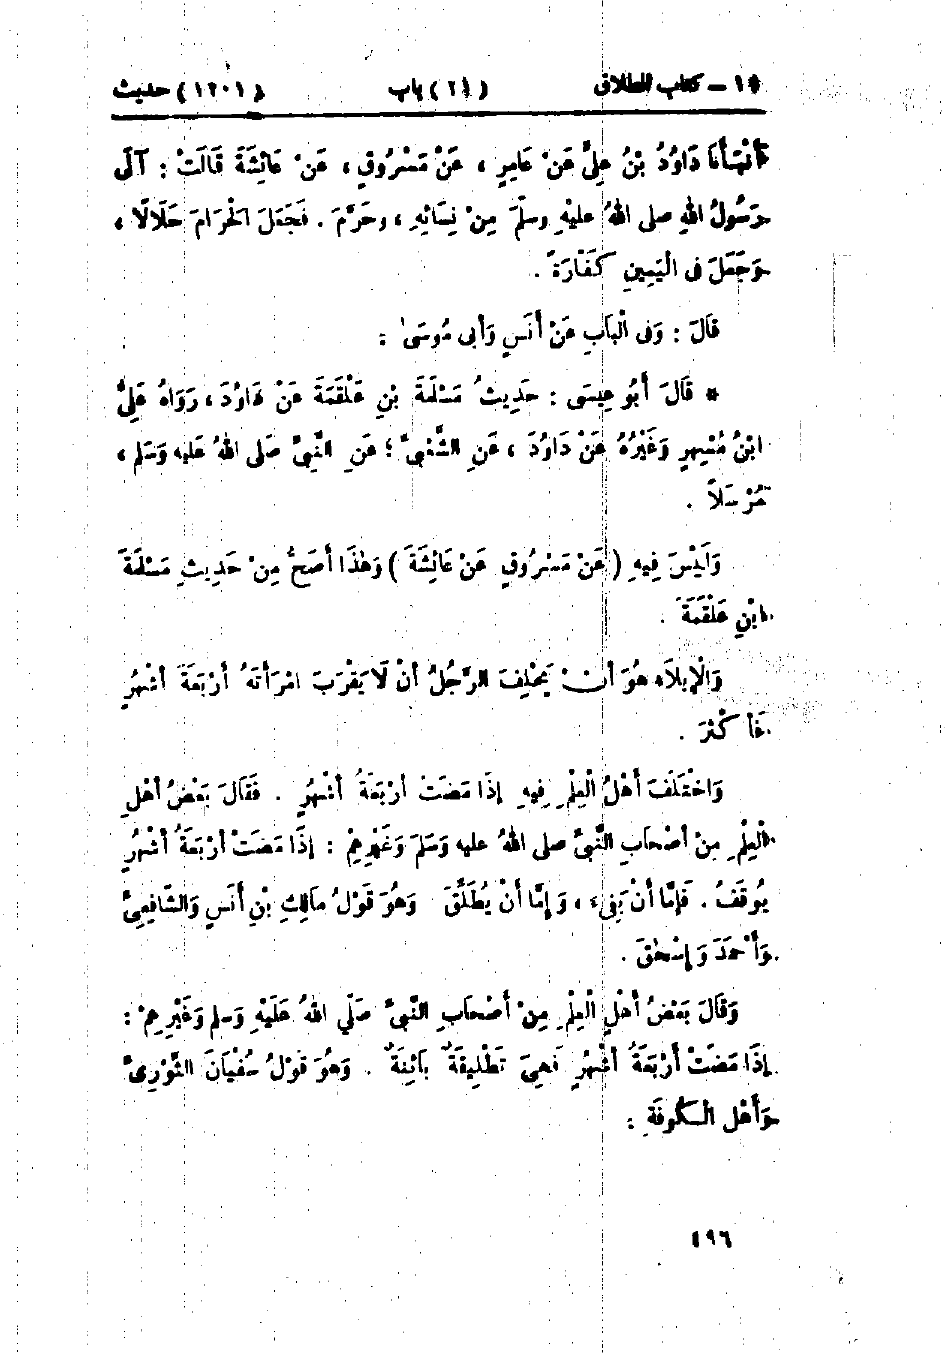 ١٥ – كتاب الطلاق (٢١) باب (١٢٠١) حديث
أَنْبَأَنَا دَاوُدُ بْنُ عَلِيٍّ عَنْ عَامِرٍ ، عَنْ مَسْرُوقٍ ، عَنْ عَائِشَةَ قَالَتْ : آلَى
رَسُولُ اللهِ صلى اللهُ عليْهِ وسلَّمَ مِنْ نِسَائِهِ ، وحَرَّمَ . فَجَعَلَ الْحَرَامَ حَلَالًا ،
وَجَعَلَ فى الْيَمِينِ كَفَّارَةً .
قَالَ : وَفى الْبَابِ عَنْ أَنَسٍ وَأَبى مُوسَى :
* قَالَ أَبُو عِيسَى : حَدِيثُ مَسْلَمَةَ بْنِ عَلْقَمَةَ عَنْ دَاوُدَ ، رَوَاهُ عَلِيُّ
ابْنُ مُسْهِرٍ وَغَيْرُهُ عَنْ دَاوُدَ ، عَنِ الشَّعْبِىِّ ؛ عَنِ النَّبِىِّ صَلى اللهُ عَليه وَسَلم ،
مُرْسَلاً .
وَلَيْسَ فِيهِ ( عَنْ مَسْرُوقٍ عَنْ عَائِشَةَ ) وَهٰذَا أَصَحُّ مِنْ حَدِيثِ مَسْلَمَةَ
ابْنِ عَلْقَمَةَ .
وَالْإِيلَاءِ هُوَ أَنْ يَحْلِفَ الرَّجُلُ أَنْ لَا يَقْرَبَ امْرَأَتَهُ أَرْبَعَةَ أَشْهُرٍ
فَأَكْثَرَ .
وَاخْتَلَفَ أَهْلُ الْعِلْمِ فِيهِ إِذَا مَضَتْ أَرْبَعَةُ أَشْهُرٍ . فَقَالَ بَعْضُ أَهْلِ
الْعِلْمِ مِنْ أَصْحَابِ النَّبِىِّ صلى اللهُ عليه وَسَلمَ وَغَيْرِهِمْ : إِذَا مَضَتْ أَرْبَعَةُ أَشْهُرٍ
يُوقَفُ . فَإِمَّا أَنْ يَفِىءَ ، وَإِمَّا أَنْ يُطَلِّقَ وَهُوَ قَوْلُ مالِكِ بْنِ أَنَسٍ وَالشَّافِعِىِّ
وَأَحْمَدَ وَإِسْحٰقَ .
وَقَالَ بَعْضُ أَهْلِ الْعِلْمِ مِنْ أَصْحَابِ النَّبىِّ صَلَّى اللهُ عَلَيْهِ وَسَلم وَغَيْرِهِمْ :
إِذَا مَضَتْ أَرْبَعَةُ أَشْهُرٍ فَهِىَ تَطْلِيقَةٌ بَائِنَةٌ . وَهُوَ قَوْلُ سُفْيَانَ الثَّوْرِىِّ
وَأَهْلِ الْكُوفَةِ :
١٩٦